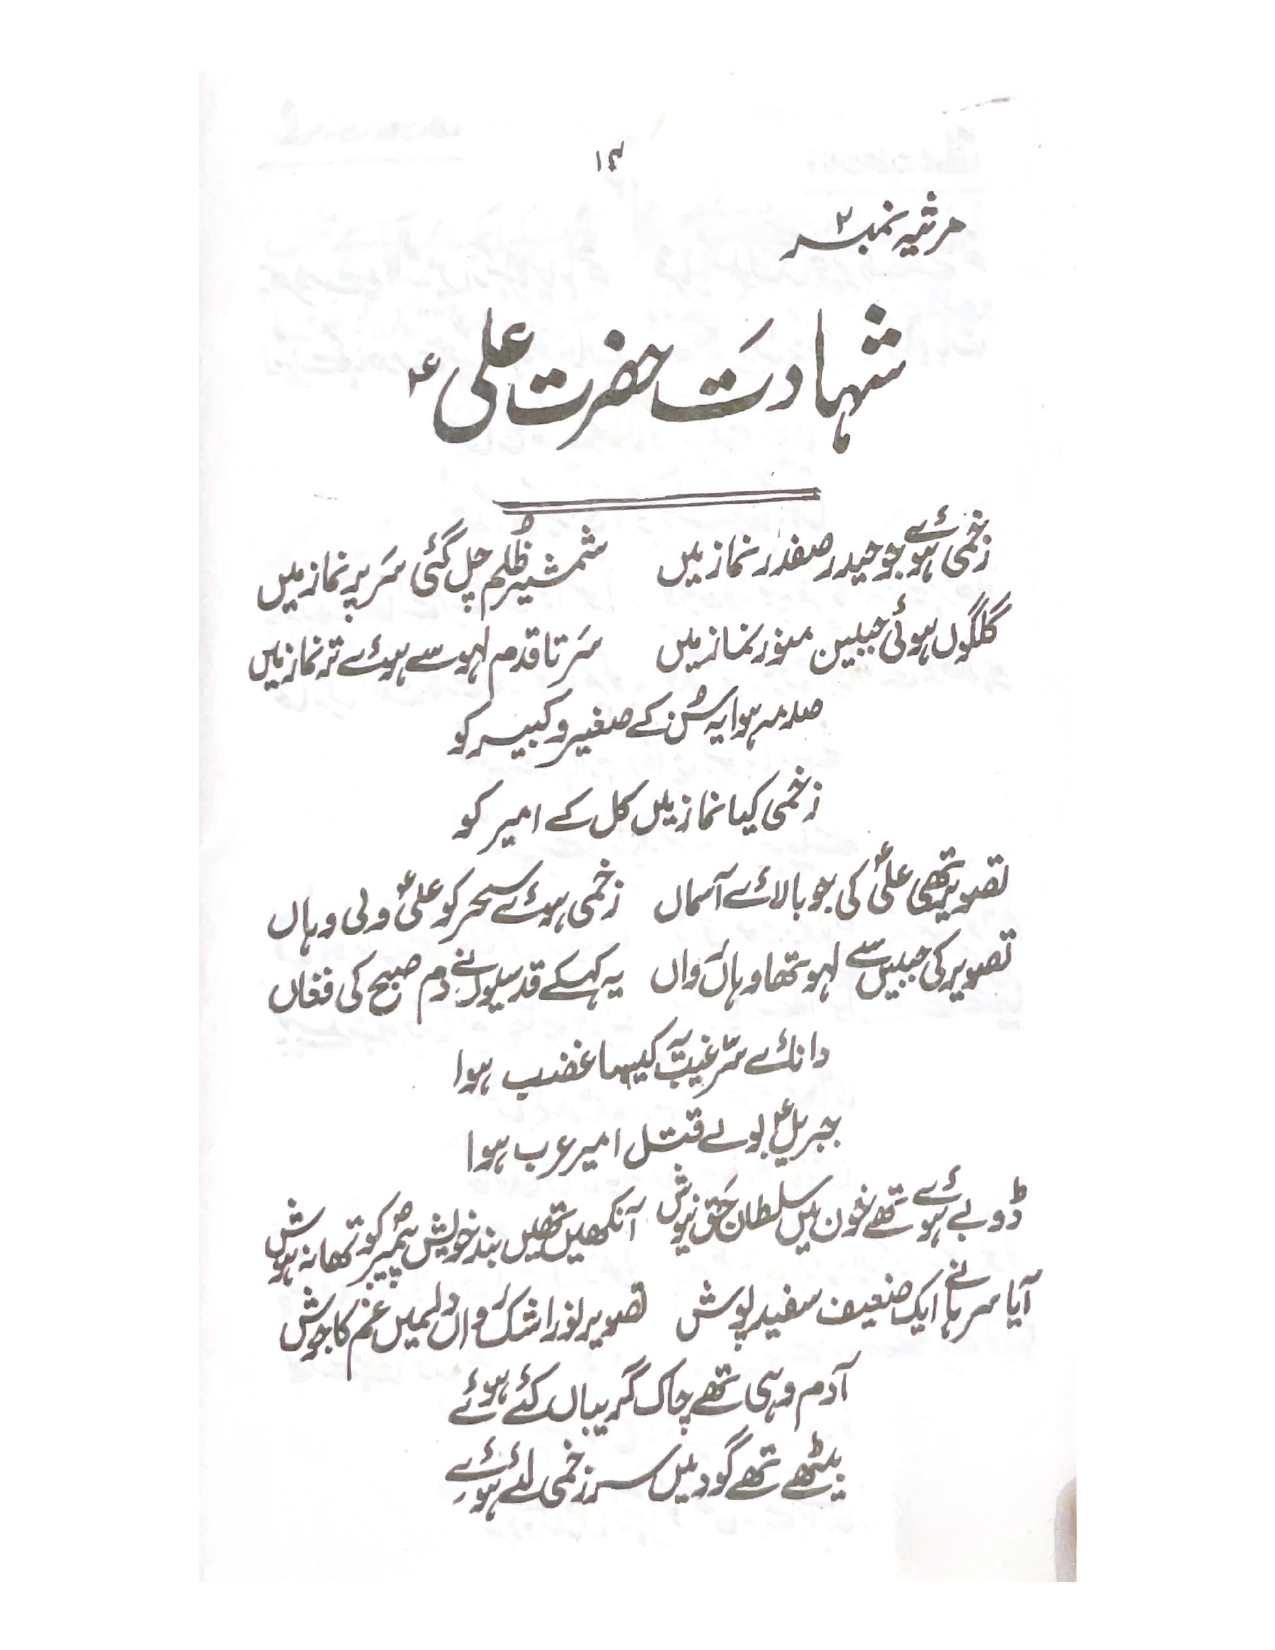 ۱۴
مرثیہ نمبر ۲
شہادت حضرت علیؑ
زخمی ہوئے جو حیدر صفدر نماز میں شمشیر ظلم چل گئی سر پر نماز میں
گلگوں ہوئی جبین منور نماز میں سر تا قدم لہو سے ہوئے تر نماز میں
صدمہ ہوا یہ سُن کے صغیر و کبیر کو
زخمی کیا نماز میں کل کے امیر کو
تصویر تھی علیؑ کی جو بالائے آسماں زخمی ہوئے سحر کو علیؑ ولی وہاں
تصویر کی جبیں سے لہو تھا وہاں رواں یہ کہکے قدسیوں نے دم صبح کی فغاں
دانائے سرّ غیب پہ کیسا غضب ہوا
جبریلؑ بولے قتل امیر عرب ہوا
ڈوبے ہوئے تھے خون میں سلطان حق نیوش آنکھیں تھیں بند خویش پیمبرؐ کو تھا نہ ہوش
آیا سرہانے ایک ضعیف سفید پوش تصویر نور اشک رواں دلمیں غم کا جوش
آدم وہی تھے چاک گریباں کئے ہوئے
بیٹھے تھے گود میں سر زخمی لئے ہوئے